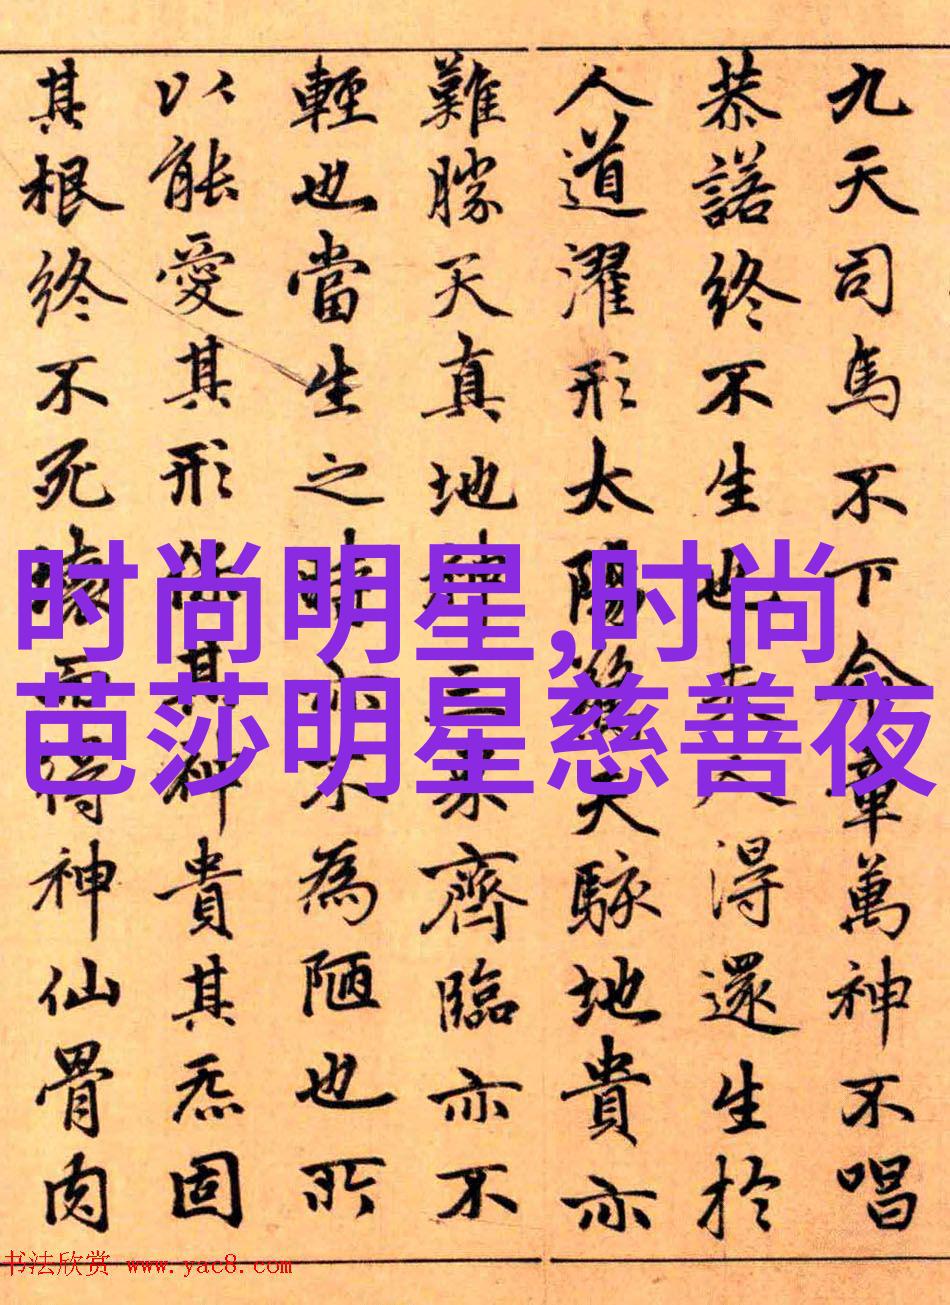 九天司馬不下命章萬神不唱
恭諾終不生也夫人得還生於
人道濯形太陽驚天駭地貴亦
難勝天真地神三界齊臨亦不
輕也當生之時亦不為陋也所
以能愛其形保其神貴其炁固
其根終不死壞而得神仙骨肉
时尚明星,时尚
芭莎明星慈善夜
书法欣赏 www.yac8.com